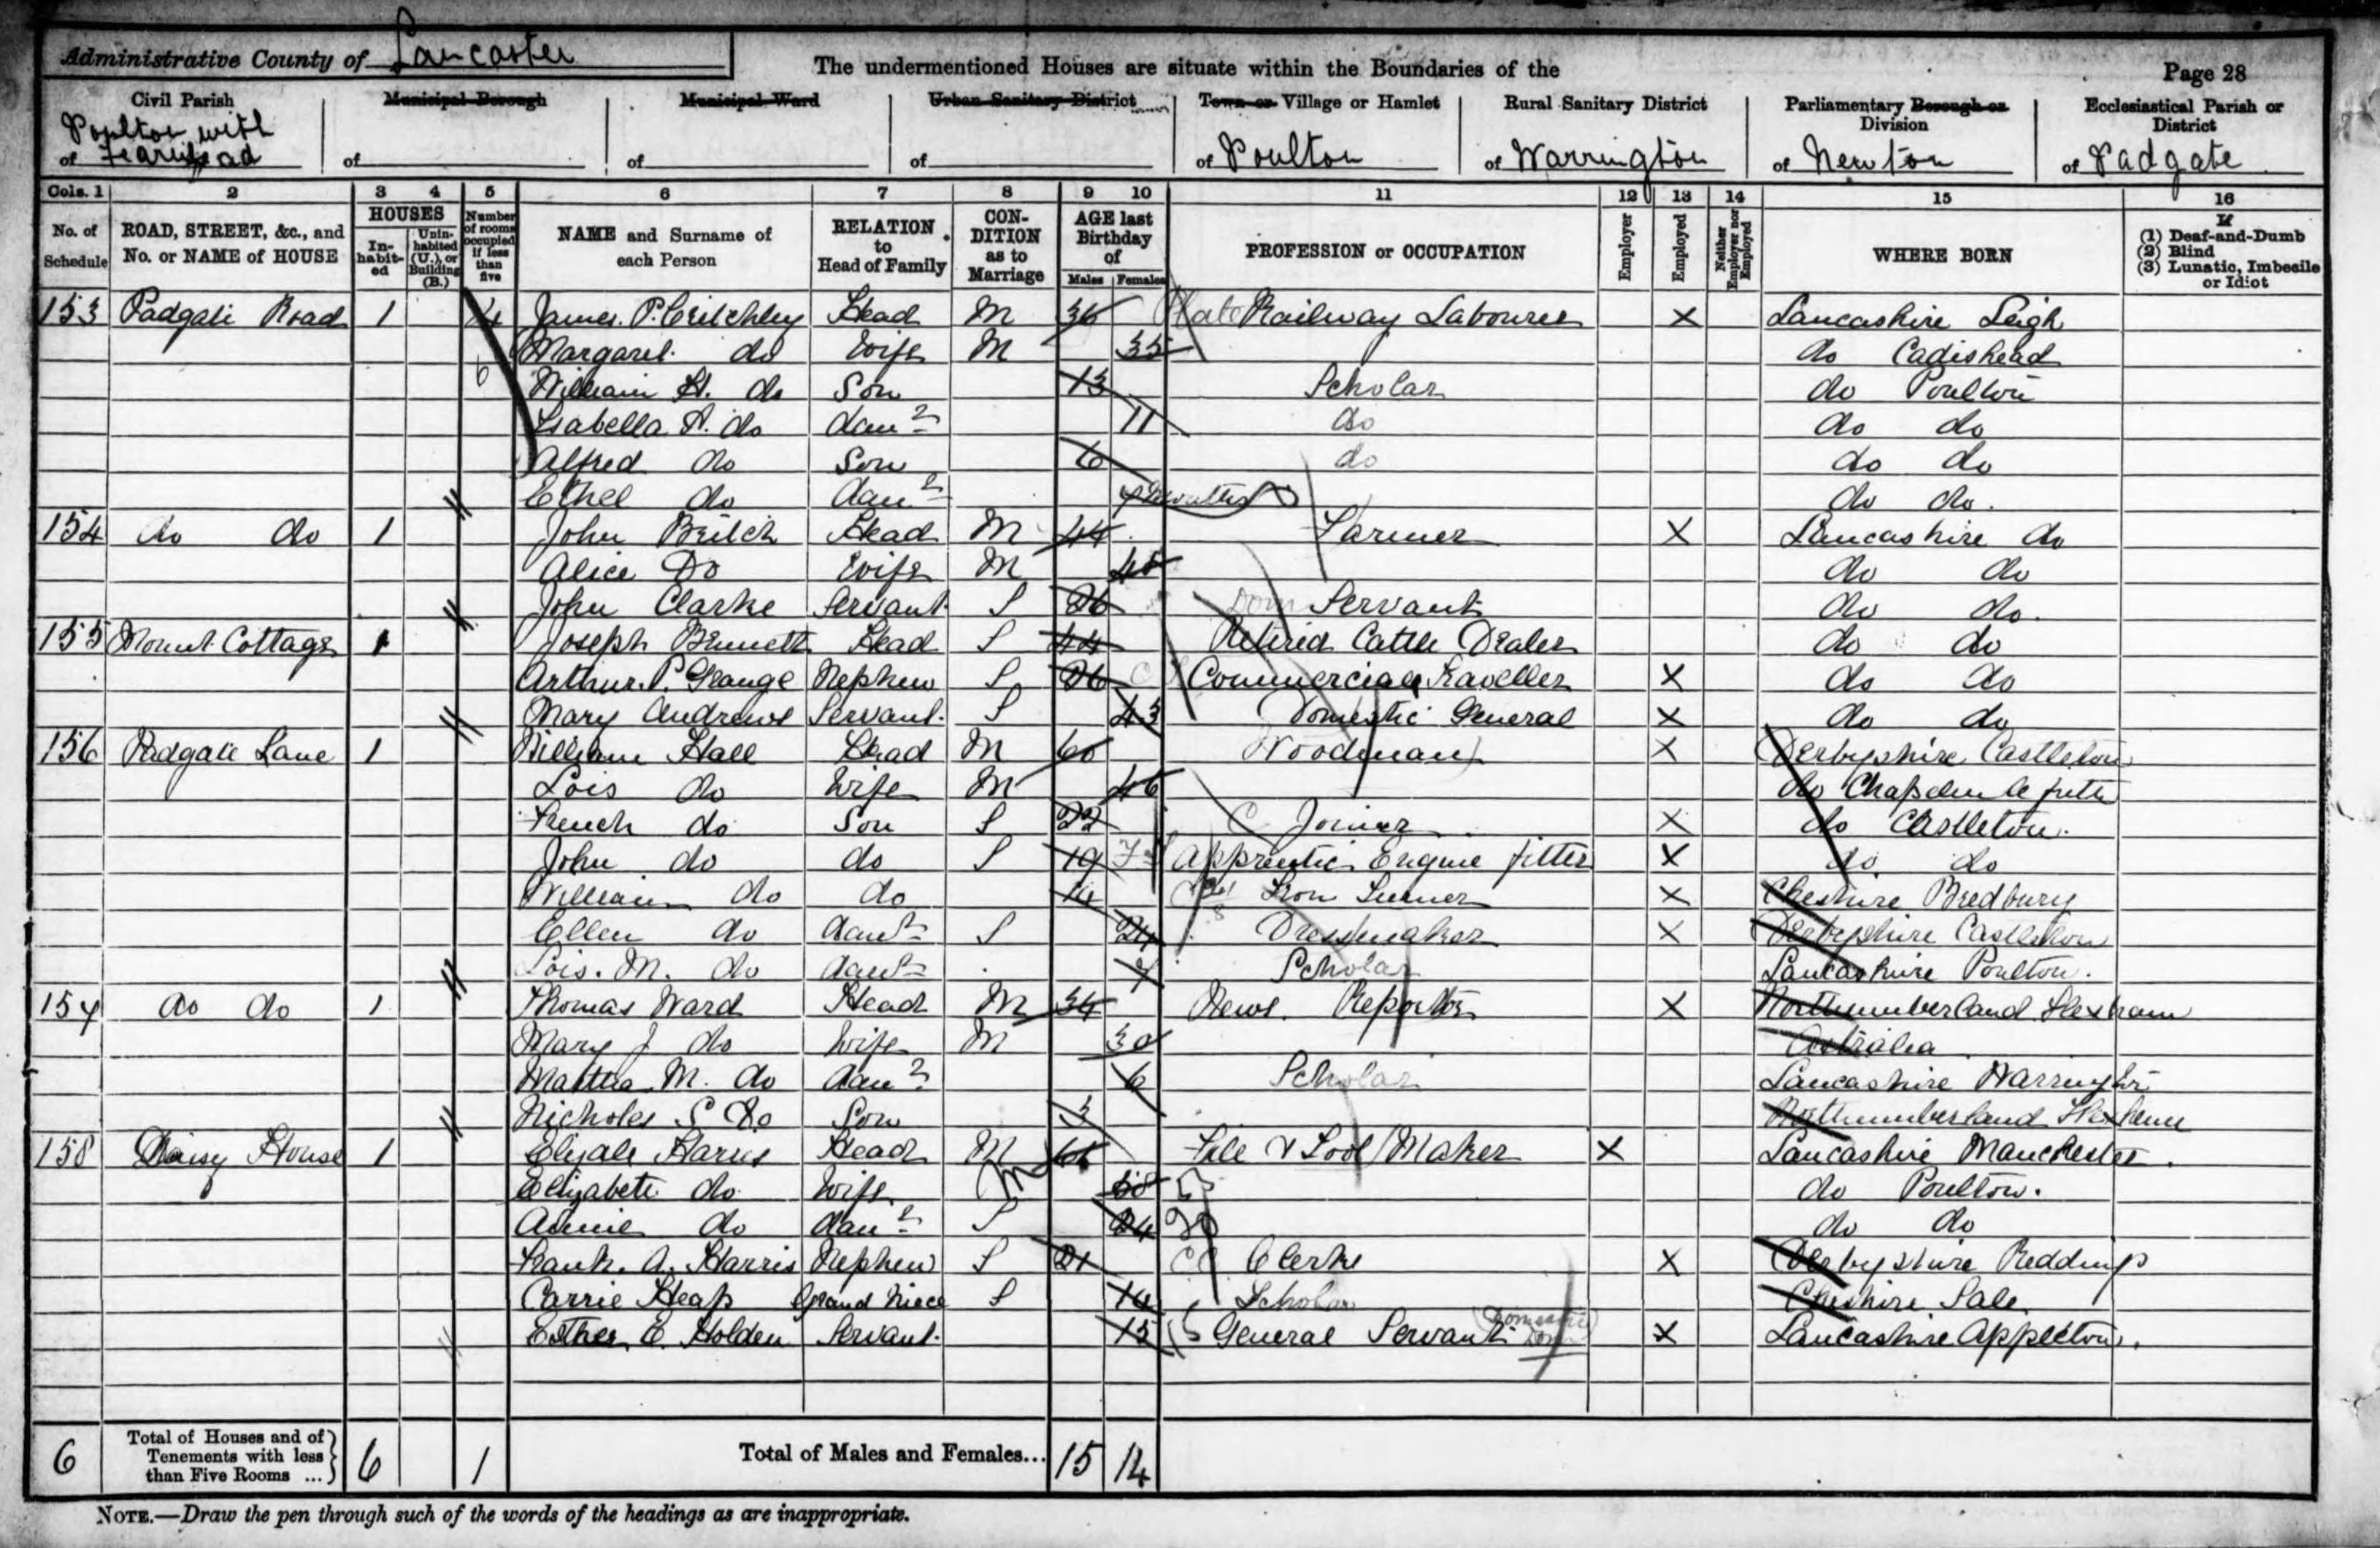 Administrative County of Lancaster
The undermentioned Houses are situate within the Boundaries of the
Page 28
Civil Parish Municipal Borough Municipal Ward Urban Sanitary District Town or Village or Hamlet Rural Sanitary District Parliamentary Borough or Division Ecclesiastical Parish or District
of Poulton with Fearnhead of of of of Poulton of Warrington of Newton of Padgate
Cols. 1 2 3 4 5 6 7 8 9 10 11 12 13 14 15 16
No. of Schedule ROAD, STREET, &c., and No. or NAME of HOUSE HOUSES In-habit-ed Unin-habited (U.), or Building (B.) Number of rooms occupied if less than five NAME and Surname of each Person RELATION to Head of Family CON-DITION as to Marriage AGE last Birthday of Males Females PROFESSION or OCCUPATION Employer Employed Neither Employer nor Employed WHERE BORN If (1) Deaf-and-Dumb (2) Blind (3) Lunatic, Imbecile or Idiot
153 Padgate Road 1 4 James P. Critchley Head M 36 Plate Railway Labourer X Lancashire Leigh
Margaret do Wife M 35 do Cadishead
6 William H. do Son 13 Scholar do Poulton
Isabella A. do daur 11 do do do
Alfred do Son 6 do do do
Ethel do daur 7 months do do
154 do do 1 John Britch Head M 44 Farmer X Lancashire do
Alice Do Wife M 45 do do
John Clarke Servant S 26 Dom Servant do do
155 Mount Cottage 1 Joseph Bennett Head S 44 Retired Cattle Dealer do do
Arthur P. Grange Nephew S 26 Commercial Traveller X do do
Mary Andrews Servant S 43 Domestic General X do do
156 Padgate Lane 1 William Hall Head M 60 Woodman X Derbyshire Castleton
Lois do Wife M 46 do Chapel en le frith
French do Son S 22 Joiner X do Castleton
John do do S 19 Apprentic Engine fitter X do do
William do do 14 Iron Turner X Cheshire Bredbury
Ellen do daur S 24 Dressmaker X Derbyshire Castleton
Lois. M. do daur 7 Scholar Lancashire Poulton.
157 do do 1 Thomas Ward Head M 34 News Reporter X Northumberland Hexham
Mary J do Wife M 30 Australia
Martha M. do daur 6 Scholar Lancashire Warrington
Nicholes S Do Son 3 Northumberland Hexham
158 Daisy House 1 Elijah Harris Head M 61 File & Tool Maker X Lancashire Manchester.
Elizabeth do Wife M 58 do Poulton.
Annie do daur S 24 do do
Frank. A. Harris Nephew S 21 Clerk X Derbyshire Reddings
Carrie Heap Grand Niece S 14 Scholar Cheshire Sale
Esther E. Holden Servant 15 General Servant (Domestic) Dom X Lancashire Appleton.
6 Total of Houses and of Tenements with less than Five Rooms ... 6 1 Total of Males and Females... 15 14
NOTE.—Draw the pen through such of the words of the headings as are inappropriate.